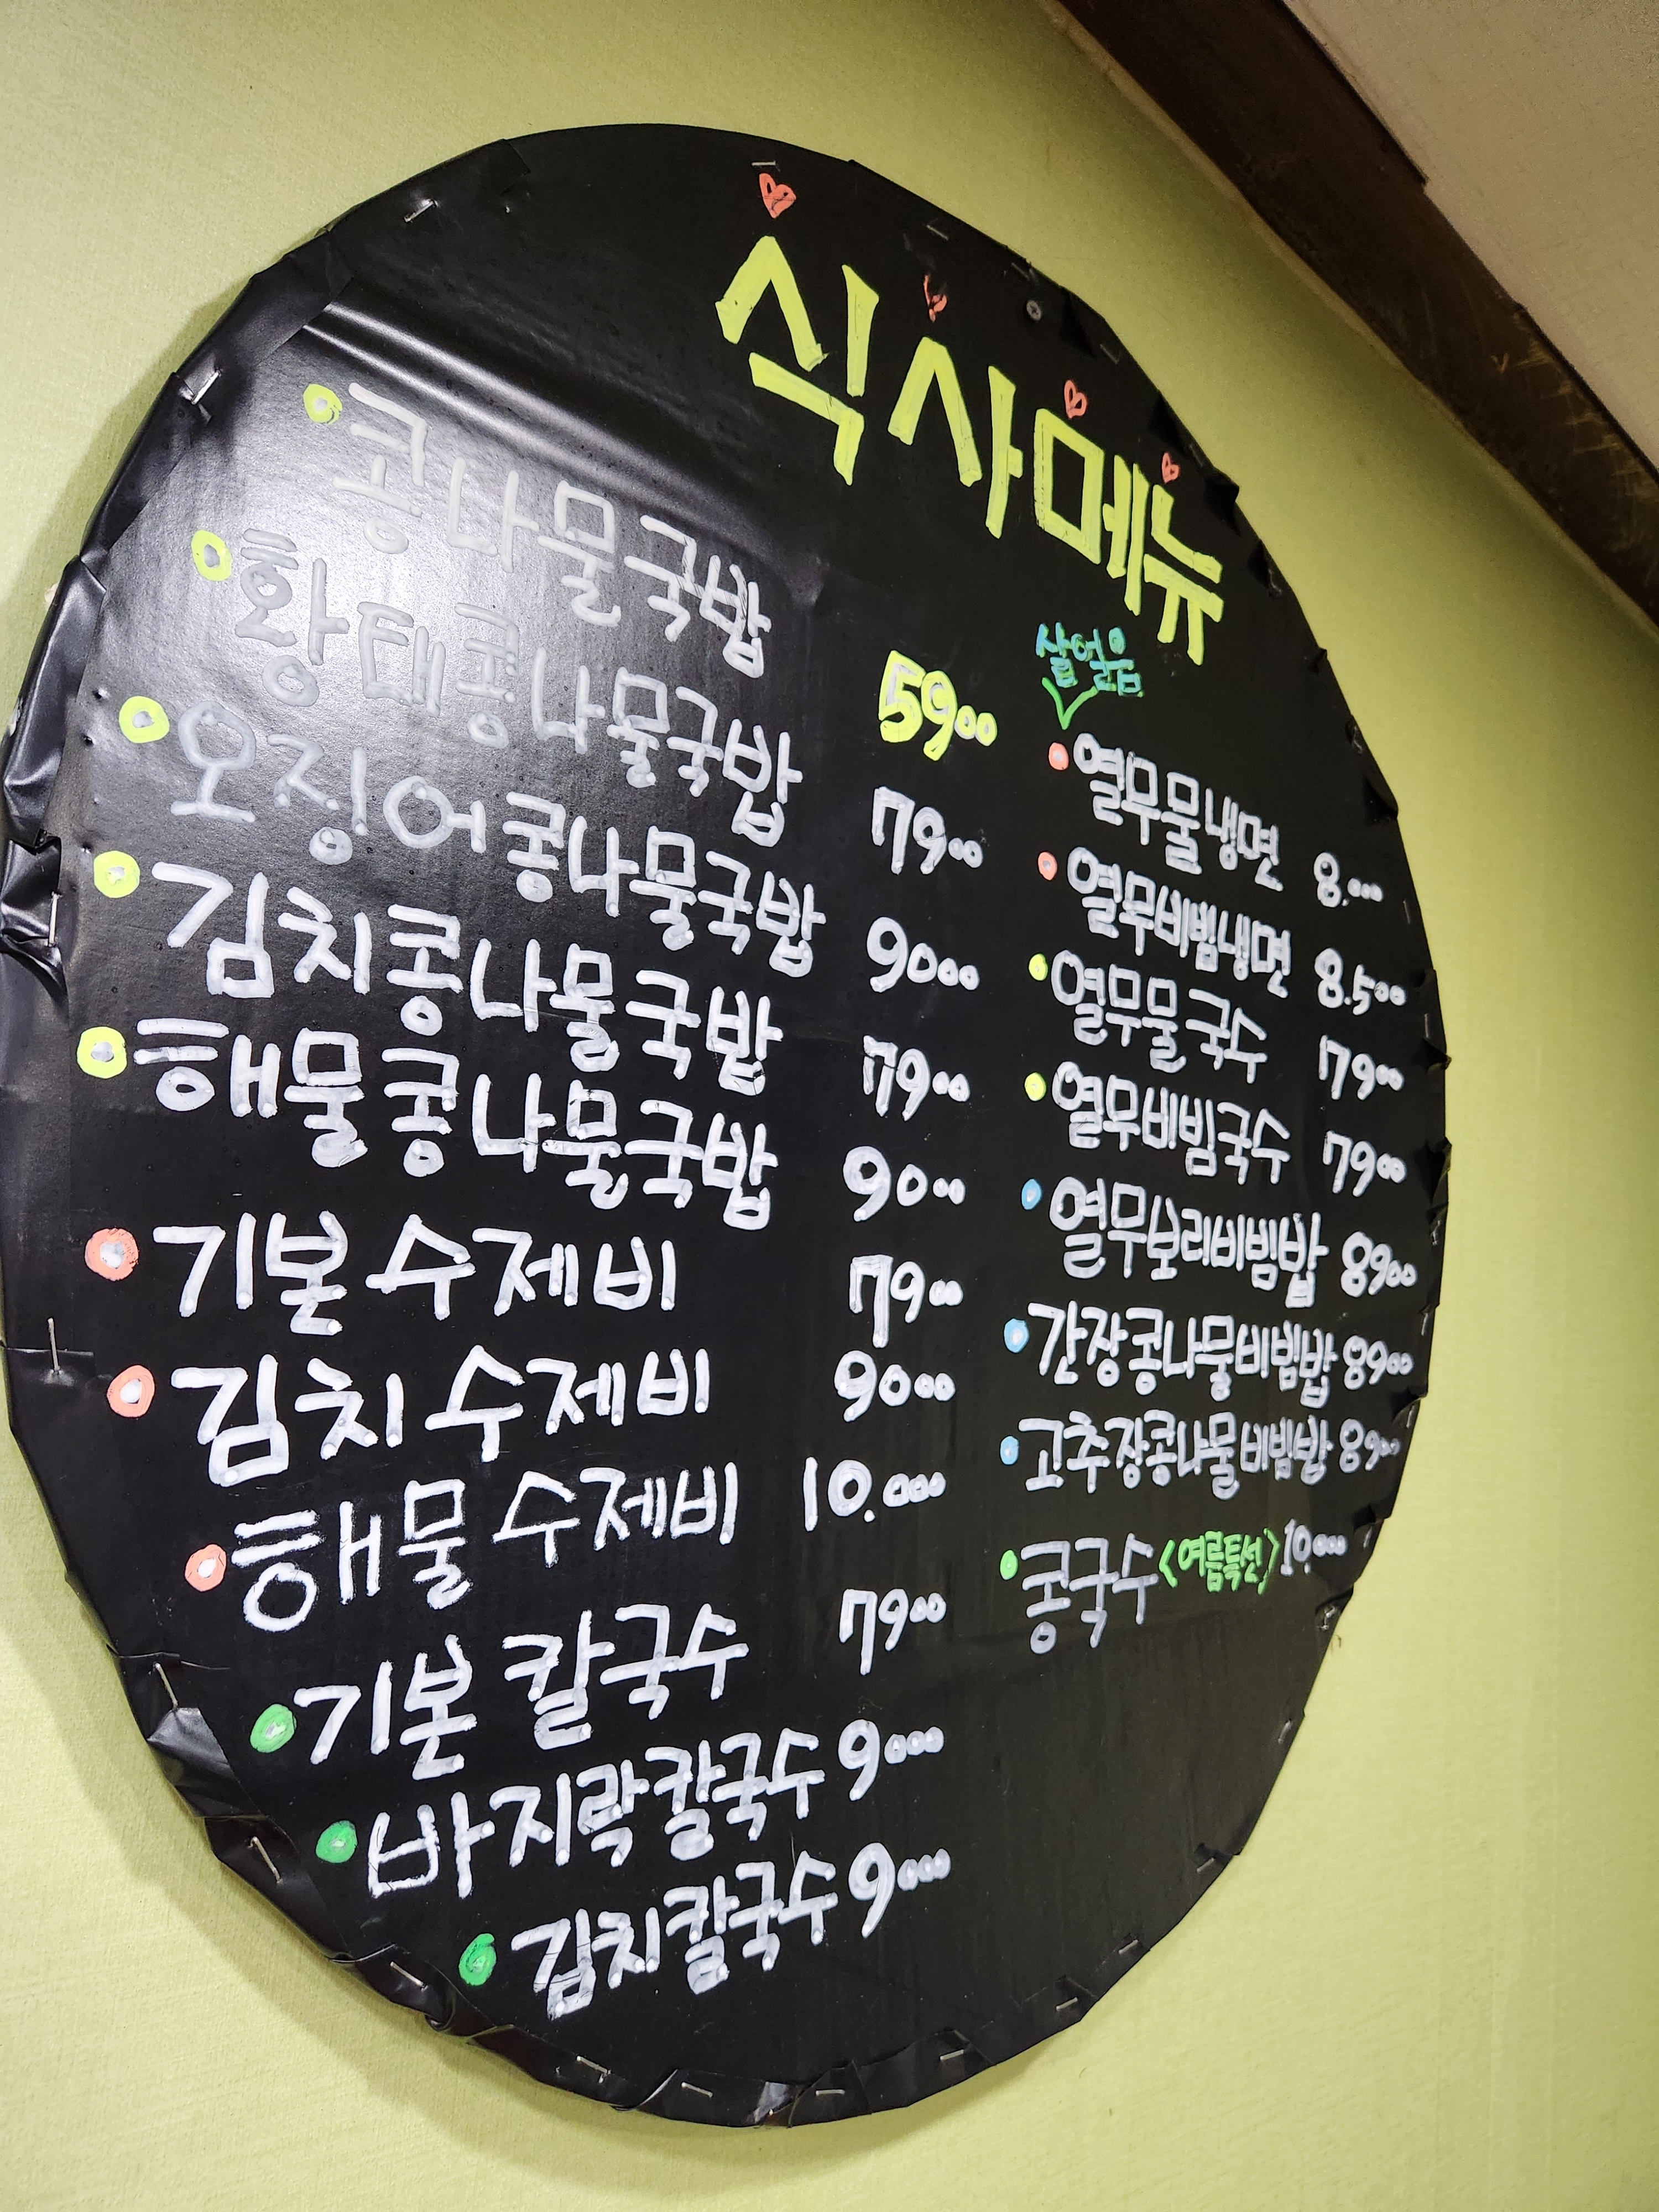 식사메뉴
콩나물국밥 5900
황태콩나물국밥 7900
오징어콩나물국밥 9000
김치콩나물국밥 7900
해물콩나물국밥 9000
기본 수제비 7900
김치 수제비 9000
해물 수제비 10.000
기본 칼국수 7900
바지락칼국수 9000
김치칼국수 9000
살얼음
열무물냉면 8.000
열무비빔냉면 8.500
열무물국수 7900
열무비빔국수 7900
열무보리비빔밥 8900
간장콩나물비빔밥 8900
고추장콩나물비빔밥 8900
콩국수<여름특선> 10.000